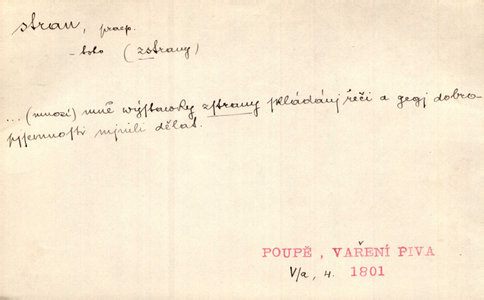 stran, praep.
- toto (zstrany)
... (mnozí) mně wýstawky zstrany skládánj řeči a gegj dobro-
pjsemnosti mjnili dělat.
POUPĚ, VAŘENÍ PIVA
V/a, 4. 1801